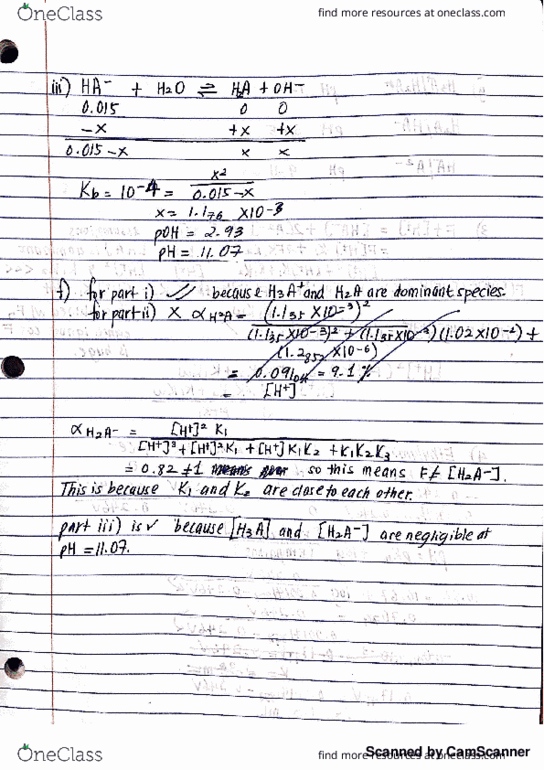 OneClass
find more resources at oneclass.com
iii) HA⁻ + H₂O ⇌ H₂A + OH⁻
0.015 0 0
-x +x +x
0.015-x x x
Kb = 10⁻⁴ = x² / 0.015-x
x = 1.176 ×10⁻³
pOH = 2.93
pH = 11.07
f) for part i) ✓ because H₃A⁺ and H₂A are dominant species.
for part ii) X α H²A⁻ = (1.135 ×10⁻³)²
(1.135 ×10⁻³)² + (1.135 ×10⁻³)(1.02 ×10⁻²) +
(1.285 ×10⁻⁶)
= 0.091 = 9.1 %
= [H⁺]
α H₂A⁻ = [H⁺]² K₁
[H⁺]³ + [H⁺]² K₁ + [H⁺] K₁K₂ + K₁K₂K₃
= 0.82 ≠ 1 so this means F ≠ [H₂A⁻].
This is because K₁ and K₂ are close to each other.
part iii) is ✓ because [H₃A] and [H₂A⁻] are negligible at
pH = 11.07.
OneClass
find more resources at oneclass.com
Scanned by CamScanner